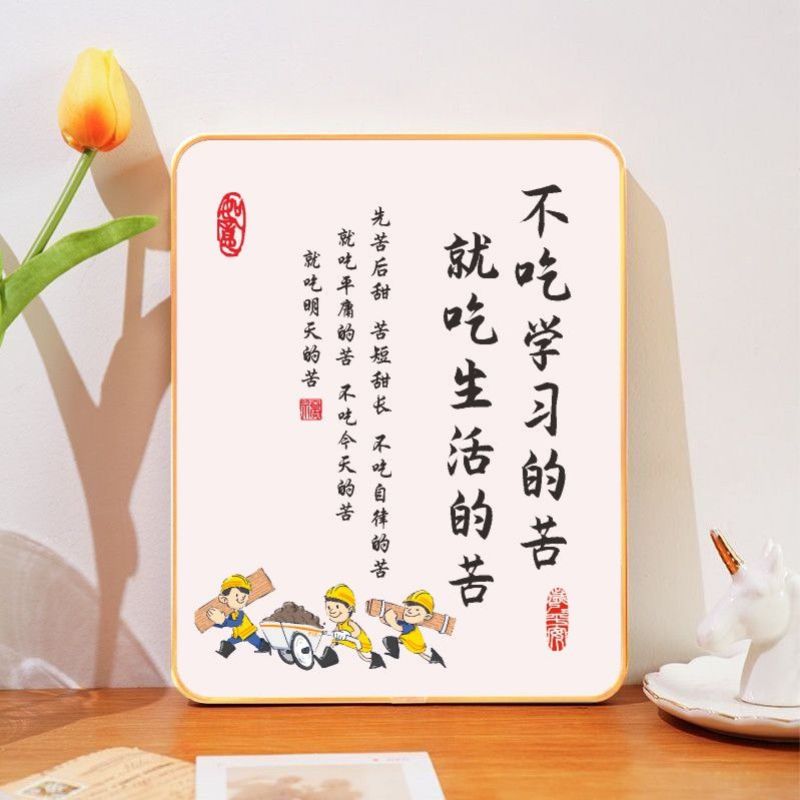 不吃学习的苦
就吃生活的苦
先苦后甜 苦短甜长 不吃自律的苦
就吃平庸的苦 不吃今天的苦
就吃明天的苦
如意